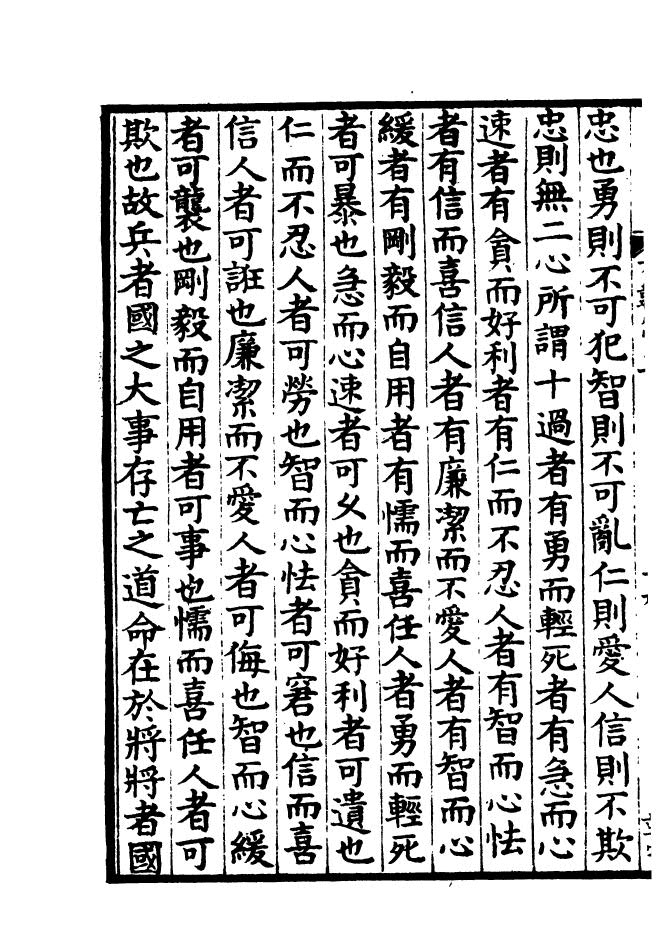 忠也勇則不可犯智則不可亂仁則愛人信則不欺
忠則無二心所謂十過者有勇而輕死者有急而心
速者有貪而好利者有仁而不忍人者有智而心怯
者有信而喜信人者有廉潔而不愛人者有智而心
緩者有剛毅而自用者有懦而喜任人者勇而輕死
者可暴也急而心速者可久也貪而好利者可遺也
仁而不忍人者可勞也智而心怯者可窘也信而喜
信人者可誑也廉潔而不愛人者可侮也智而心緩
者可襲也剛毅而自用者可事也懦而喜任人者可
欺也故兵者國之大事存亡之道命在於將將者國